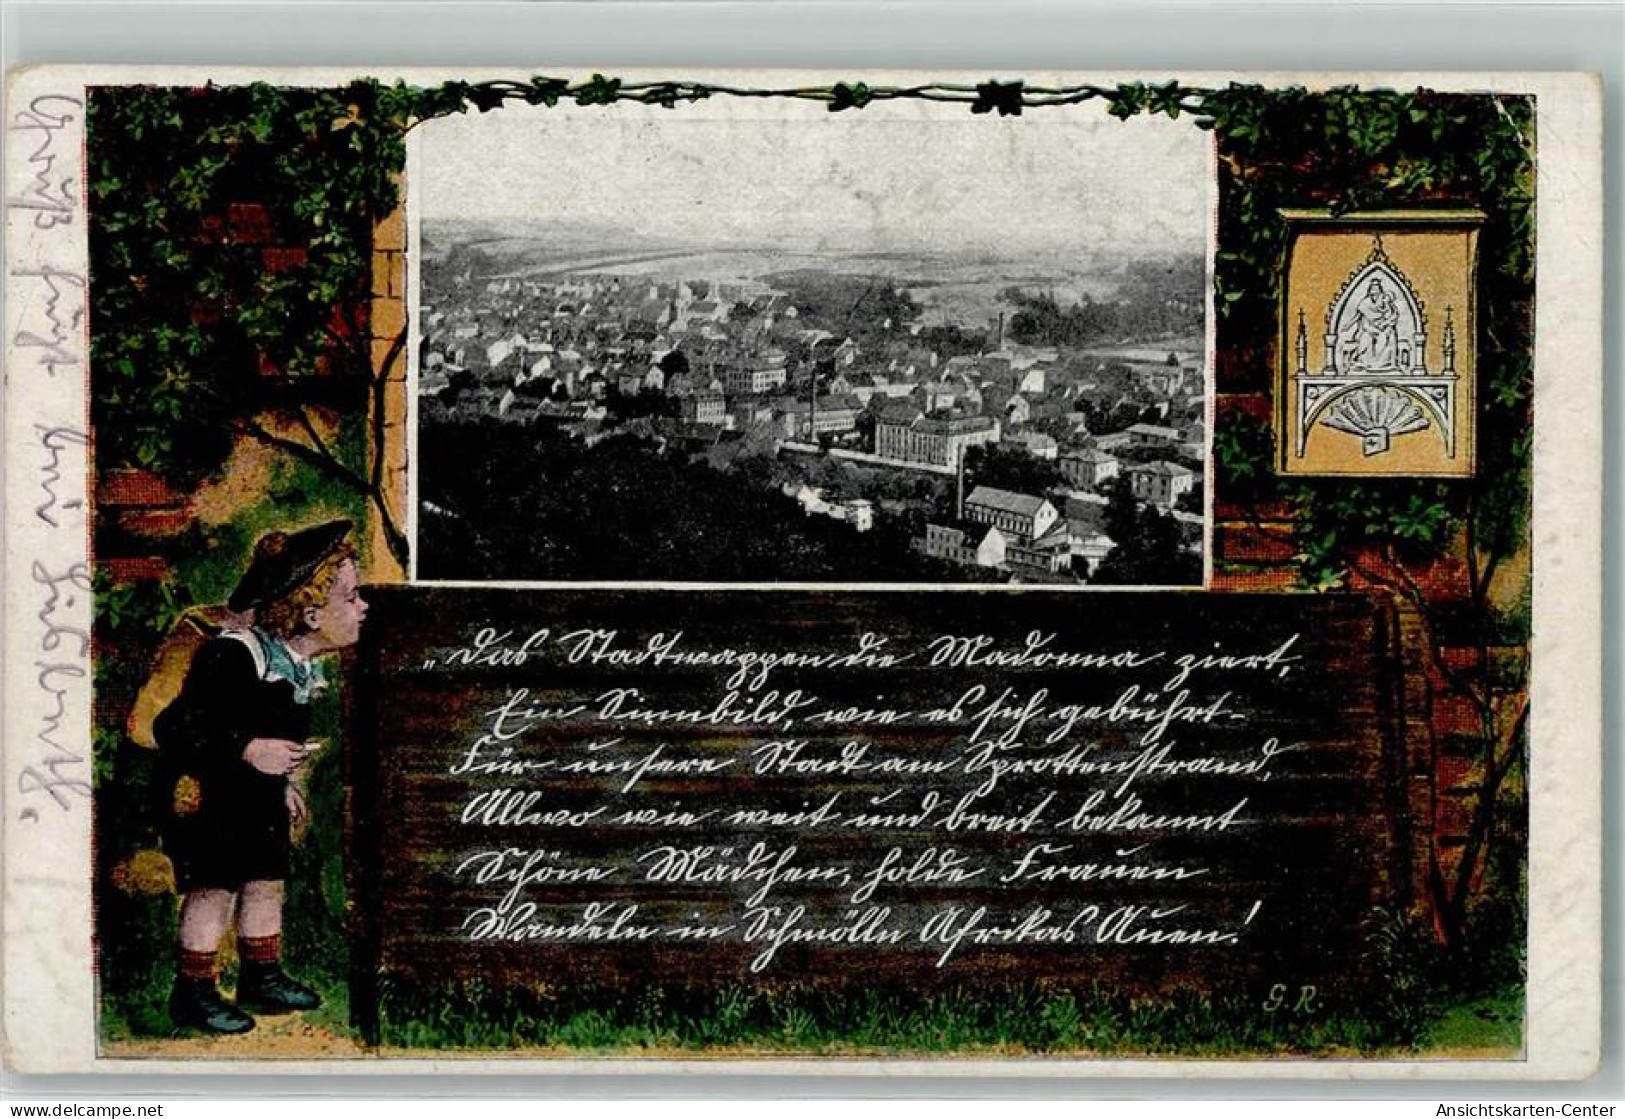 „Das Stadtwappen die Madonna ziert,
Ein Sinnbild, wie es sich gebührt-
Für unsere Stadt am Sprottenstrand,
Allwo wie weit und breit bekannt
Schöne Mädchen, holde Frauen
Wandeln in Schmölln Afrikas Auen!
G. R.
delcampe.net
Ansichtskarten-Center